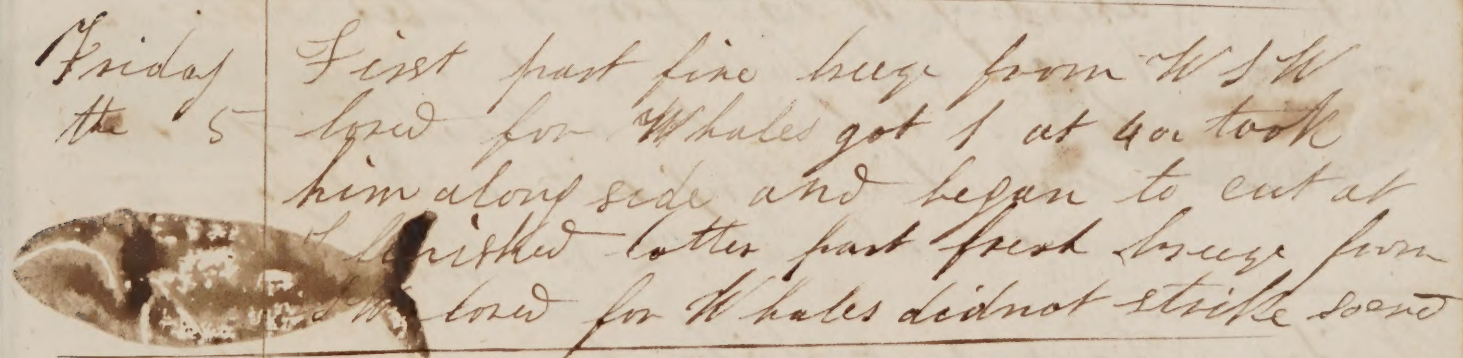 Friday First part fine breeze from W S W
the 5 lored for Whales got 1 at 4 took
him along side and began to cut at
finished latter part fresh breeze from
S W lored for Whales did not strike soend